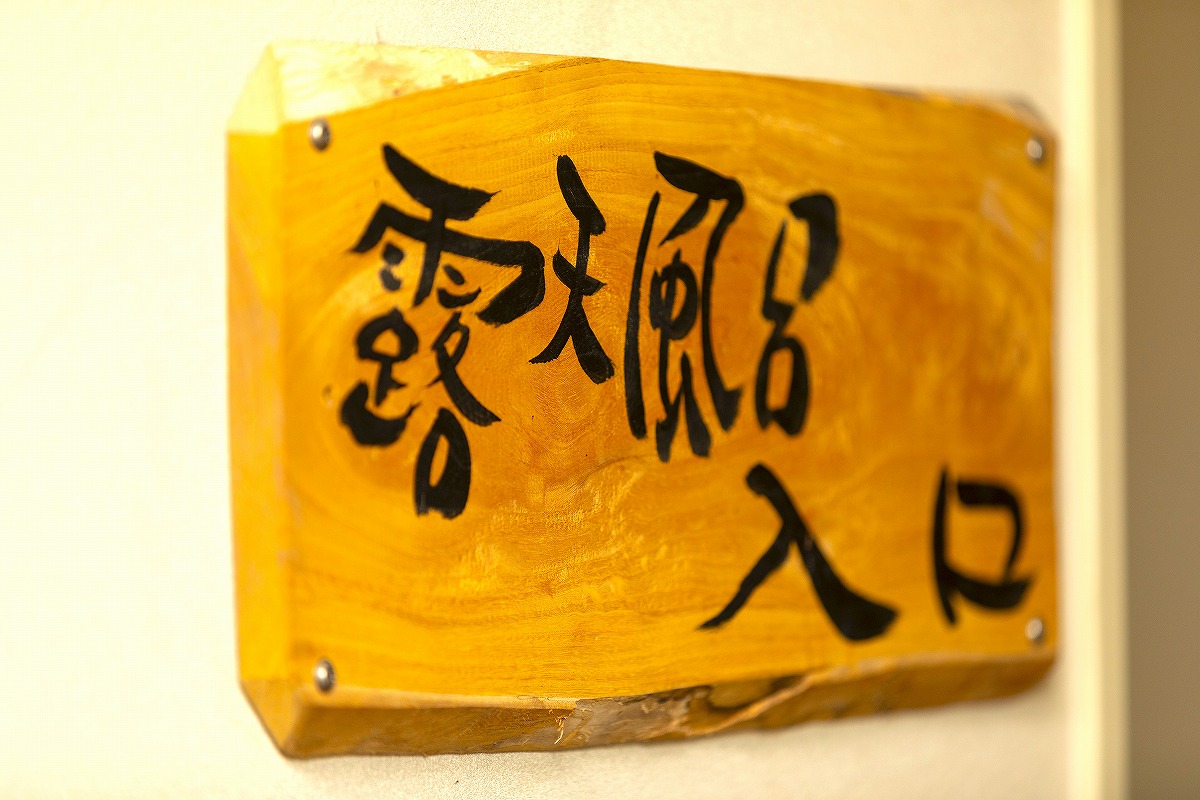 露天風呂
入口